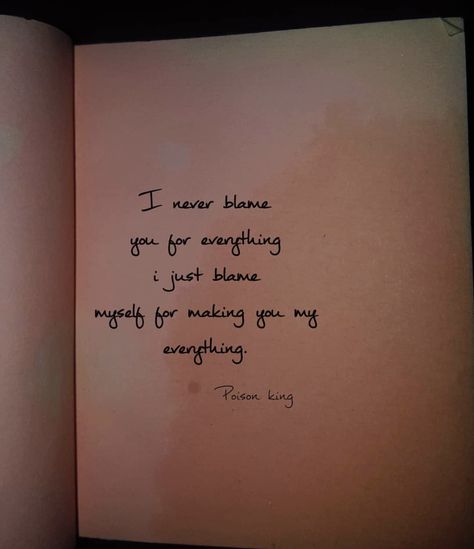 I never blame
you for everything
i just blame
myself for making you my
everything.
Poison king